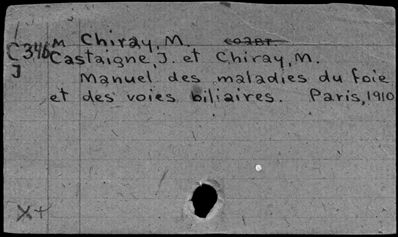 M Chiray, M.
C346 Castaigne, J. et Chiray, M.
J Manuel des maladies du foie
et des voies biliaires. Paris, 1910
X+